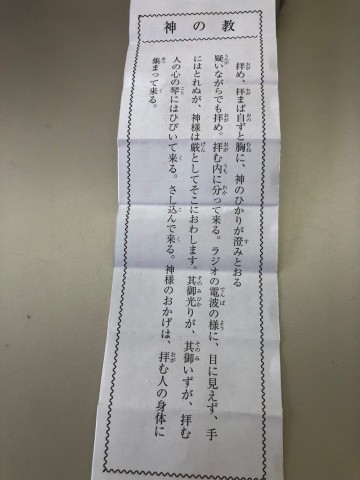 神の教
拝め、拝まば自ずと胸に、神のひかりが澄みとおる
疑いながらでも拝め。拝む内に分って来る。ラジオの電波の様に、目に見えず、手
にはとれぬが、神様は厳としてそこにおわします。其御光りが、其御いずが、拝む
人の心の琴にはひびいて来る。さし込んで来る。神様のおかげは、拝む人の身体に
集まって来る。